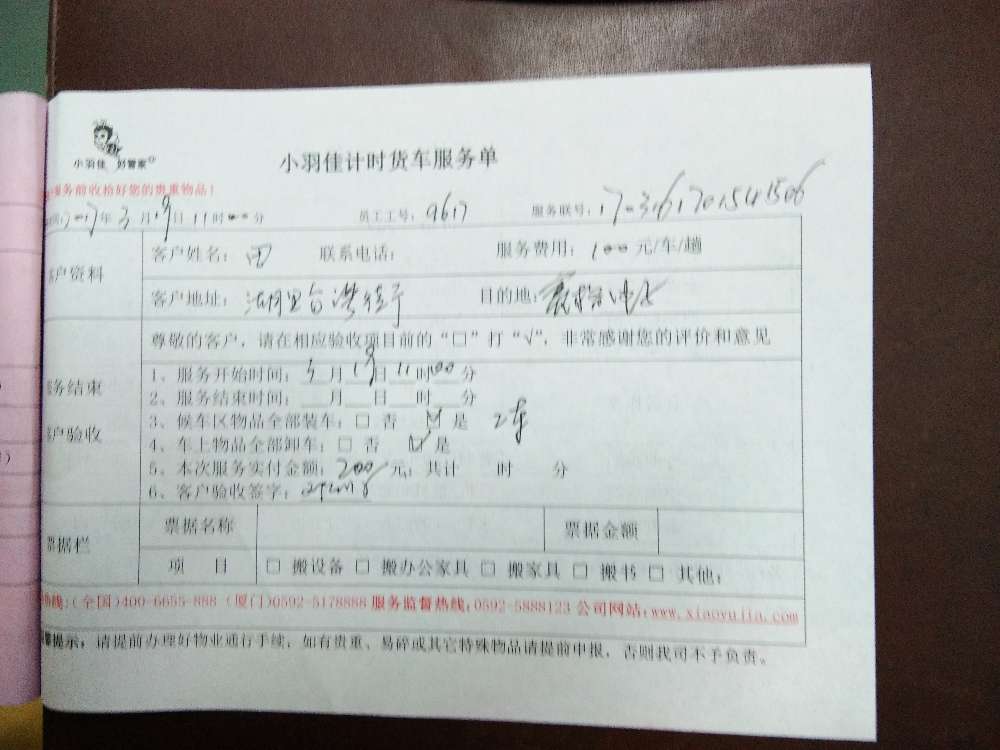 小羽佳 好管家
小羽佳计时货车服务单
务前收拾好您的贵重物品！
2017年3月19日11时00分 员工工号：9617 服务联号：
户资料 客户姓名：田 联系电话： 服务费用：100元/车/趟
客户地址： 目的地：
尊敬的客户，请在相应验收项目前的“□”打“√”，非常感谢您的评价和意见
务结束
户验收
1、服务开始时间：3月19日11时00分
2、服务结束时间：__月__日__时__分
3、候车区物品全部装车：□ 否 ☑ 是 2车
4、车上物品全部卸车：□ 否 ☑ 是
5、本次服务实付金额：200元；共计 时 分
6、客户验收签字：
票据栏 票据名称 票据金额
项 目 □ 搬设备 □ 搬办公家具 □ 搬家具 □ 搬书 □ 其他：
热线：（全国）400-6655-888（厦门）0592-5178888 服务监督热线：0592-5888123 公司网站：www.xiaoyujia.com
提示：请提前办理好物业通行手续，如有贵重、易碎或其它特殊物品请提前申报，否则我司不予负责。